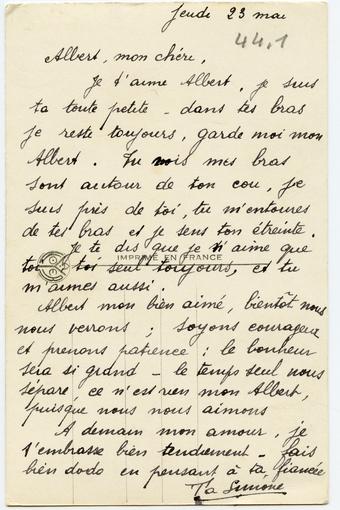 Jeudi 23 mai
44.1
Albert, mon chéri,
Je t'aime Albert, je suis
ta toute petite - dans tes bras
je reste toujours, garde moi mon
Albert. Tu vois mes bras
sont autour de ton cou, je
suis près de toi, tu m'entoures
de tes bras et je sens ton étreinte.
IMPRIMÉ EN FRANCE
Je te dis que je n'aime que
toi toi seul toujours, et tu
m'aimes aussi.
Albert mon bien aimé, bientôt nous
nous verrons ; soyons courageux
et prenons patience ; le bonheur
sera si grand - le temps seul nous
sépare, ce n'est rien mon Albert,
puisque nous nous aimons
A demain mon amour, je
t'embrasse bien tendrement - fais
bien dodo en pensant à ta fiancée
Ta Simone